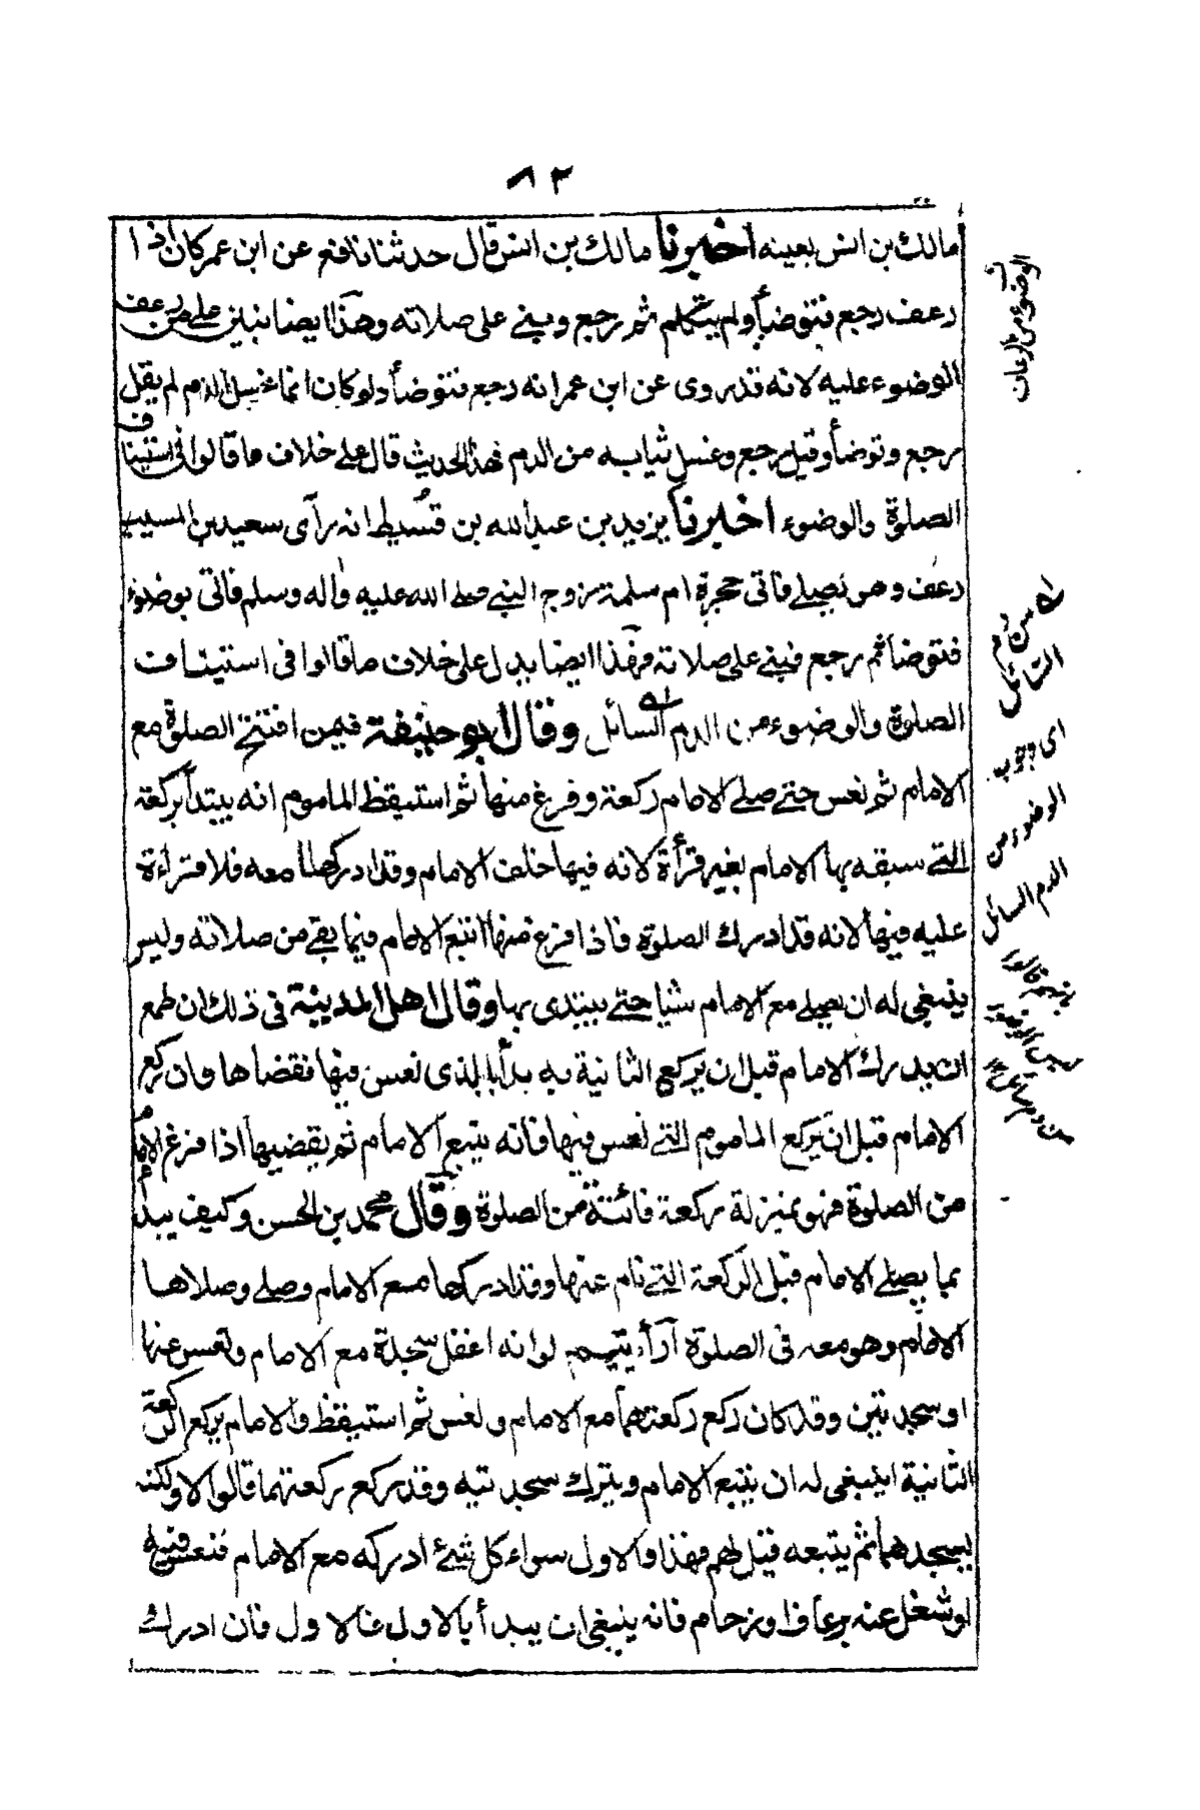 ٨٢
مالك بن انس بعينه اخبرنا مالك بن انس قال حدثنا نافع عن ابن عمر كان اذا
رعف رجع فتوضأ ولم يتكلم ثم رجع وبنى على صلاته وهذا ايضا يبين على من رعف
الوضوء عليه لانه قد روى عن ابن عمر انه رجع فتوضأ ولو كان انما غسل الدم لم يقل
رجع وتوضأ وقيل رجع وغسل ثيابه من الدم فهذا الحديث قال على خلاف ما قالوا فى استيناف
الصلوة والوضوء اخبرنا يزيد بن عبد الله بن قسيط انه رآى سعيد بن المسيب
رعف وهو يصلى فاتى حجرة ام سلمة زوج النبى صلى الله عليه واله وسلم فاتى بوضوء
فتوضأ ثم رجع فبنى على صلاته وفهذا ايضا يدل على خلاف ما قالوا فى استيناف
الصلوة والوضوء من الدم السائل وقال ابو حنيفة فيمن افتتح الصلوة مع
الامام ثم نعس حتى صلى الامام ركعة وفرغ منها ثم استيقظ الماموم انه يبتدأ بركعة
التى سبقه بها الامام بغير قرأة لانه فيها خلف الامام وقد ادركها معه فلا قرأة
عليه فيها لانه قد ادرك الصلوة فاذا فرغ منها اتبع الامام فيما بقى من صلاته وليس
ينبغى له ان يصلى مع الامام شيئا حتى يبتدى بها وقال اهل المدينة فى ذلك ان طمع
ان يدرك الامام قبل ان يركع الثانية به بدأ بالذى نعس فيها فقضاها وان ركع
الامام قبل ان يركع الماموم التى نعس فيها فانه يتبع الامام ثم يقضيها اذا فرغ الامام
من الصلوة فهو بمنزلة ركعة فائتة من الصلوة وقال محمد بن الحسن وكيف يبدأ
بما يصلى الامام قبل الركعة التى نام عنها وقد ادركها مع الامام وصلى وصلاها
الامام وهو معه فى الصلوة أرأيتم لو انه اغفل سجدة مع الامام ونعس عنها
او سجدتين وقد كان ركع ركعتهما مع الامام ونعس ثم استيقظ والامام يركع الركعة
الثانية اينبغى له ان يتبع الامام ويترك سجدتيه وقد ركع ركعتهما قالوا لا ولكنه
يسجدهما ثم يتبعه قيل لهم فهذا والاول سواء كل شئ ادركه مع الامام فنعس فيه
او شغل عنه برعاف او زحام فانه ينبغى ان يبدأ بالاول فالاول فان ادرك
الوضوء من الرعاف
اى من دم
السائل
اى وجوب
الوضوء من
الدم السائل